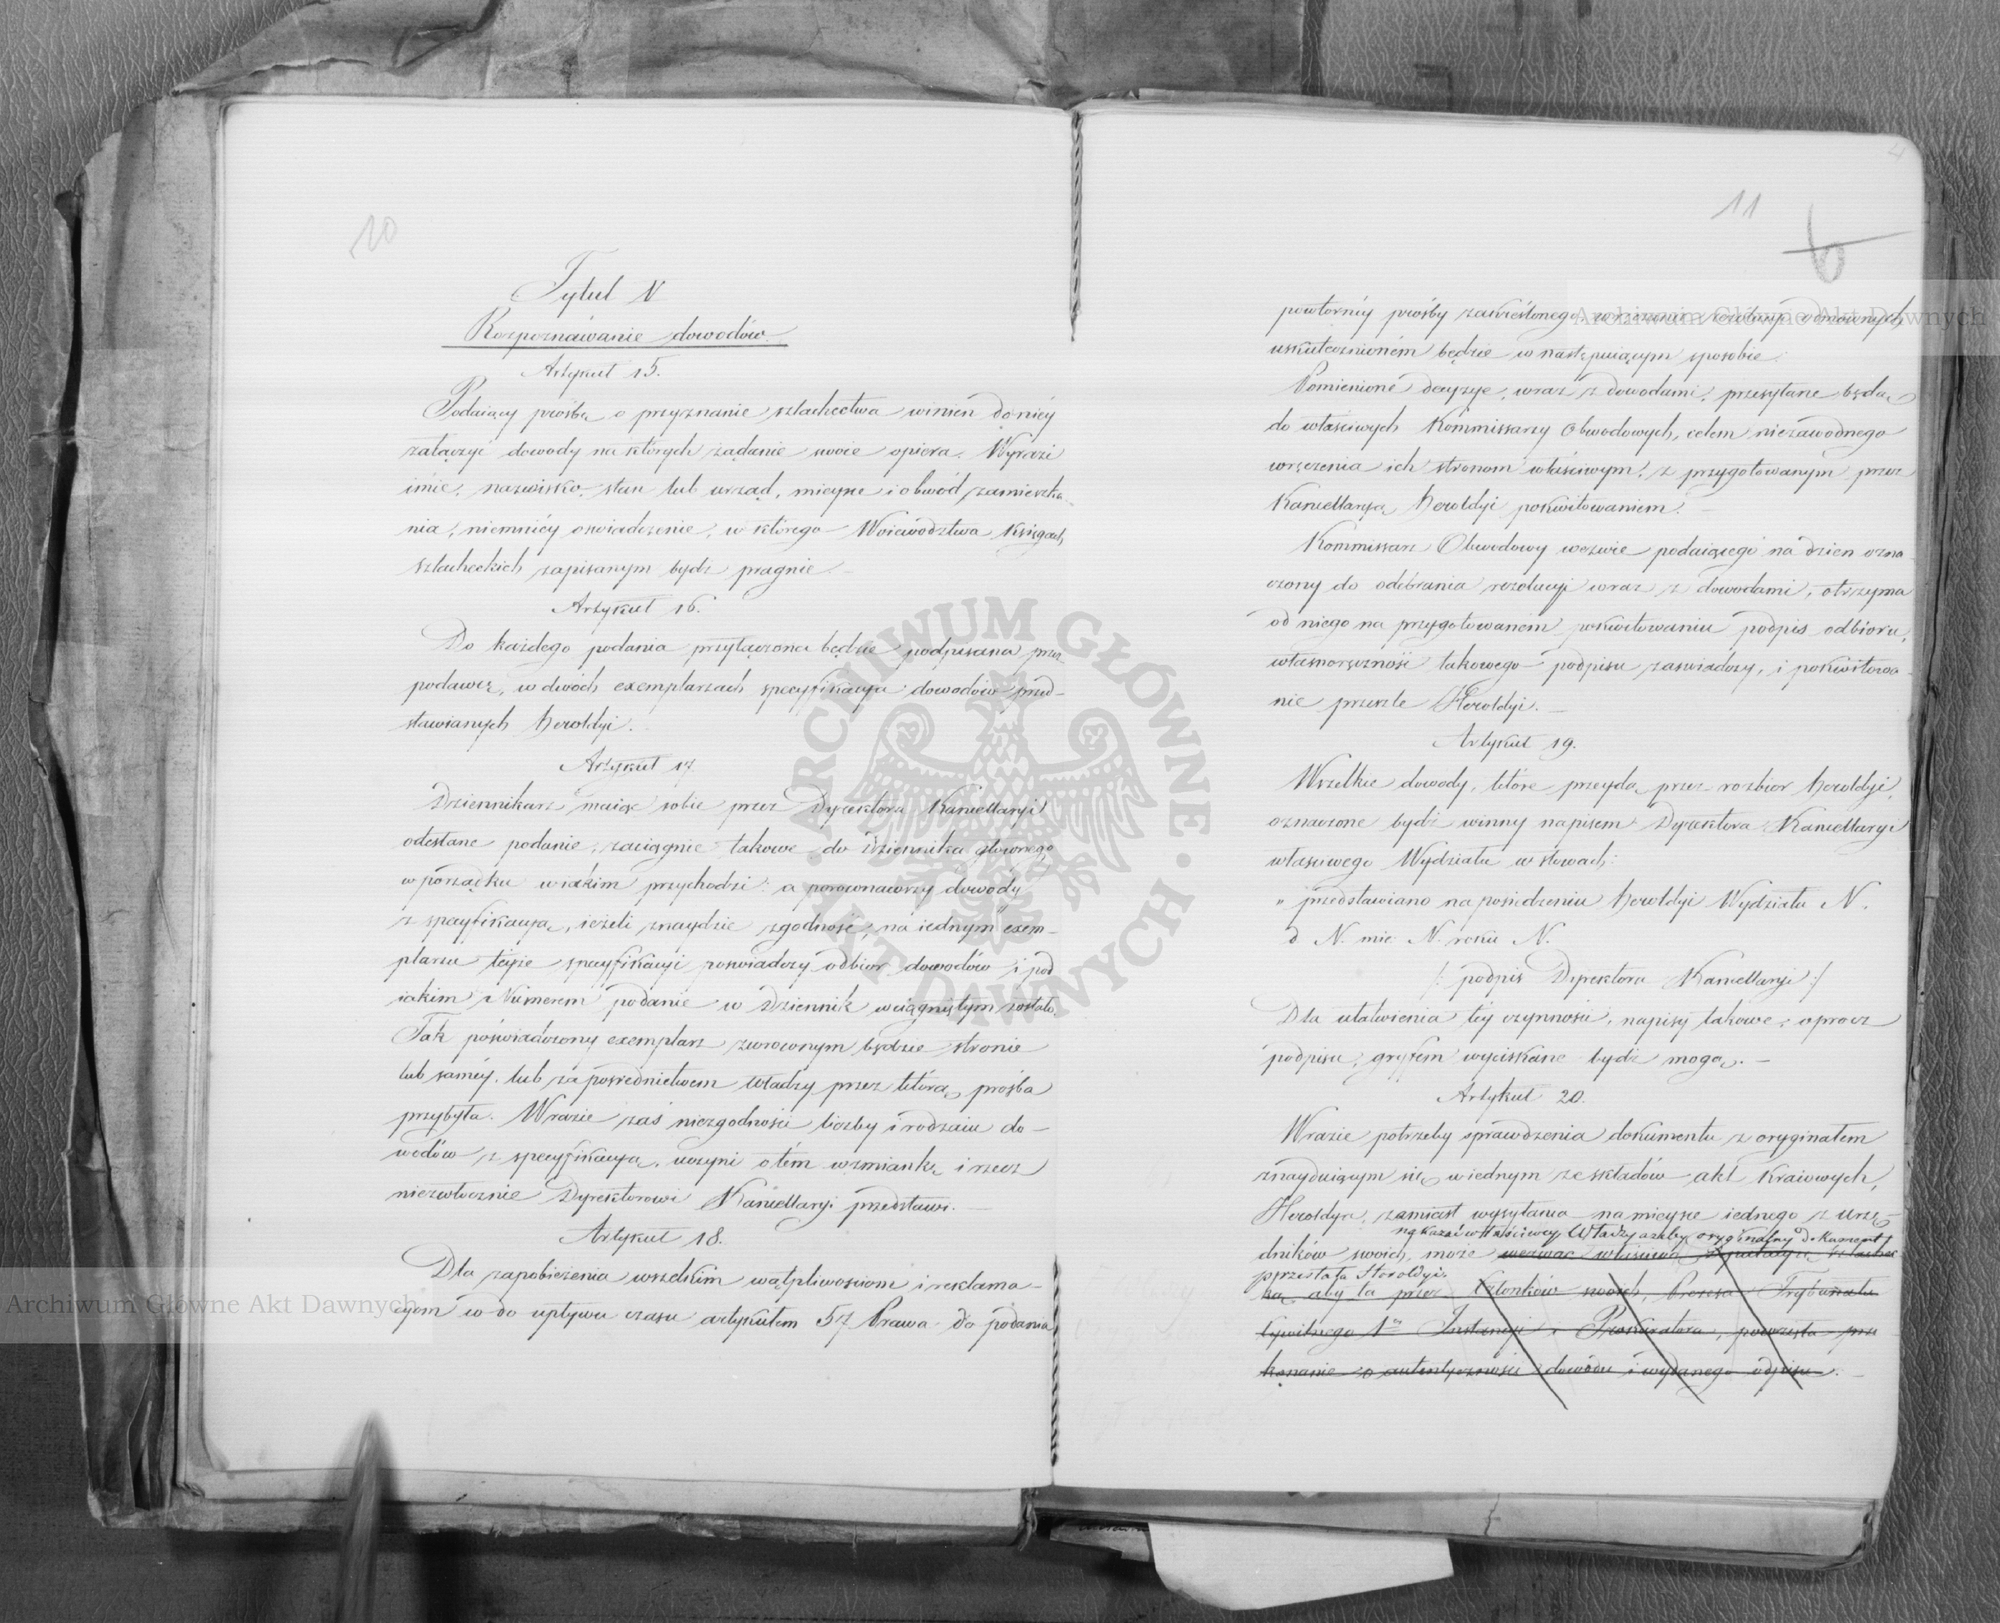 10
Tytuł V
Rozpoznáwanie dowodów.
Artykuł 15.
Podaiący prośbę o przyznanie szlachectwa winien do niéy
załączyć dowody na których żądanie swoie opiera. Wyrazi
imie, nazwisko, stan lub urząd, mieysce i obwód zamieszka-
nia, niemniéy oświadczenie, w którego Woiewództwa Księgach
szlacheckich zapisanym bydz pragnie.
Artykuł 16.
Do każdego podania przyłączona będzie podpisana przez
podawcę, w dwóch exemplarzach specyfikacya dowodów przed-
stawianych Heroldyi.
Artykuł 17.
Dziennikarz maiąc sobie przez Dyrektora Kancellaryi
odesłane podanie zaciągnie takowe do dziennika głównego
w porządku w iakim przychodzi: a porównawszy dowody
z specyfikacyą, ieżeli znaydzie zgodność, na iednym exem-
plarzu téyże specyfikacyi poświadczy odbiór dowodów i pod
iakim Numerem podanie w dziennik wciągniętym zostało.
Tak poświadczony exemplarz zwróconym będzie stronie
lub saméy, lub za pośrednictwem Władzy przez którą prośba
przybyła. W razie zaś niezgodności liczby i rodzaiu do-
wodów z specyfikacyą, uczyni o tém wzmiankę i rzecz
niezwłocznie Dyrektorowi Kancellaryi przedstawi.
Artykuł 18.
Dla zapobieżenia wszelkim wątpliwościom i reklama-
cyom co do upływu czasu artykułem 57 Prawa do podania
4
11
6
powtórnéy prośby zakreślonego, wręczanie rezolucyi odmównych
uskutecznioném będzie w następuiącym sposobie:
Pomienione decyzye, wraz z dowodami, przesyłane będą
do właściwych Kommissarzy Obwodowych, celem niezawodnego
wręczenia ich stronom właściwym, z przygotowanym przez
Kancellaryą Heroldyi pokwitowaniem.
Kommissarz Obwodowy wezwie podaiącego na dzień ozna
czony do odebrania rezolucyi wraz z dowodami, otrzyma
od niego na przygotowaném pokwitowaniu podpis odbioru,
własnoręczność takowego podpisu zaświadczy, i pokwitowa-
nie prześle Heroldyi.
Artykuł 19.
Wszelkie dowody, które przeydą przez rozbiór Heroldyi,
oznaczone bydź winny napisem Dyrektora Kancellaryi
właściwego Wydziału w słowach:
" przedstawiano na posiedzeniu Heroldyi Wydziału N.
d. N. mie. N. roku N.
/: podpis Dyrektora Kancellaryi :/
Dla ułatwienia téy czynności, napisy takowe, oprócz
podpisu, gryfem wyciskane bydź mogą.
Artykuł 20.
W razie potrzeby sprawdzenia dokumentu z oryginałem
znayduiącym się w iednym ze składów akt Kraiowych,
Heroldya, zamiast wysyłania na mieysce iednego z urzę-
nakazać właściwey Władzy ażeby oryginalny dokument
dników swoich, może wezwać właściwą deputacyą szlachec
przesłała Heroldyi.
ką, aby ta przez członków swoich, Prezesa Trybunału
Cywilnego 1éy Instancyi i Prokuratora, powzięła prze
konanie o autentyczności dowodu i wydanego odpisu.
Archiwum Główne Akt Dawnych
Archiwum Główne Akt Dawnych
ARCHIWUM GŁÓWNE · AKT DAWNYCH ·